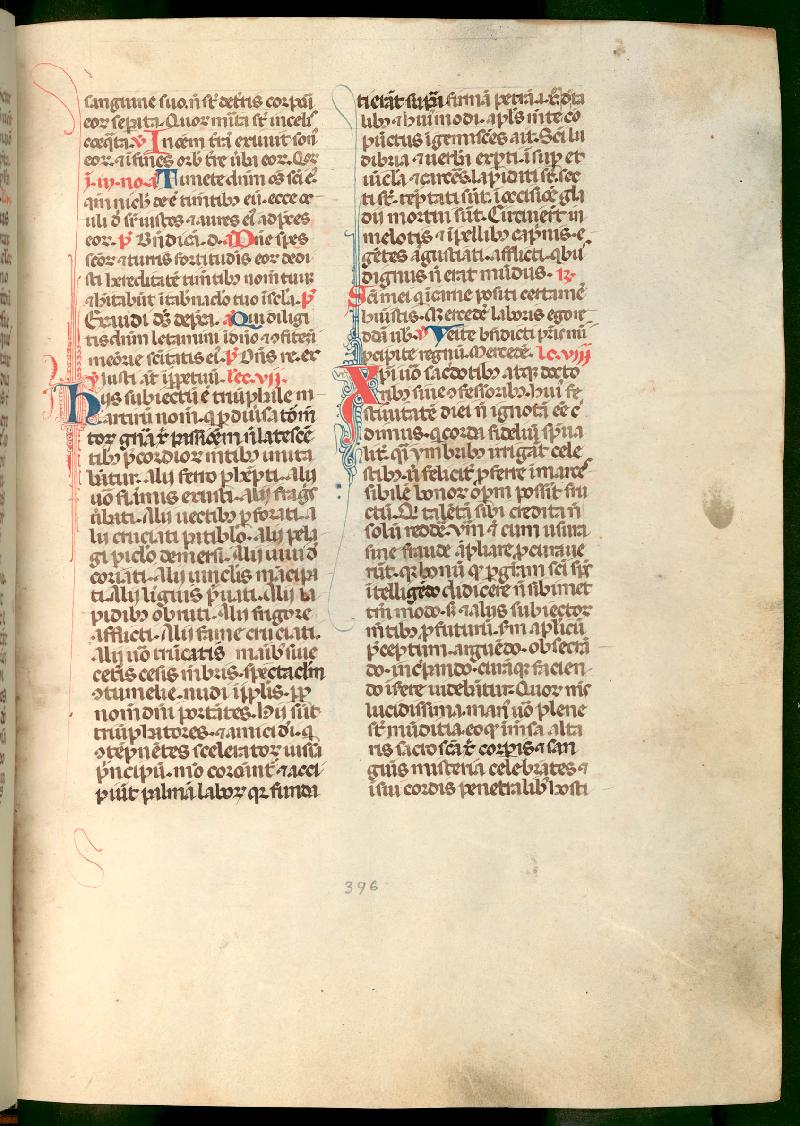 sanguine suo. n̄ st̄ derl̄is corpori
eor sepita. Quor m̄ita st̄ in celis
coeq̄ta. v̄ In oēm tr̄ā exiuit son̄
eor. ⁊ i fines orb̄ tr̄e ūba eor. Cor
Timete dūm os̄ sc̄i ei᾽
qm̄ nich̄ deē timētib᷒ eū. ecce oc
uli d᷒ sr̄ iustos ⁊ aures ei᷒ ad p̄ces
eor. p̄ Bn̄dicā. d. a Dn̄e spes
sc̄or ⁊ turris fortitudīs eor dedi
sti hereditatē timētib᷒ nom̄ tuū
⁊ h̄itabūt ī tab̄naclo tuo ī sc̄la. p̄
Exaudi ds̄ depca. a Qui diligi
tis dūm letamini ī dn̄o ⁊ ꝯfitem̄
memorie sc̄itatis ei᷒. p̄ Dn̄s re. ex
v̄ Iusti aūt ī ꝑpetuū. lec. vij.
Hijs subiectū ē triūphile m
artirū nom̄. q̄ ꝑ diūsa torm̄
tor
tib᷒ p̄cordior intib᷒ imita
b̄ntur. Alij ferro ꝑhēpti. Alij
uō flāmis exusti. Alij flagr̄
ūb̄ati. Alij uectib᷒ ꝑforati. a
lij cruciati patiblo. Alij pela
gi piclo demersi. Alij uiui d᷒
coriati. Alij uinclis mācipa
ti. Alij liguis p̄uati. Alij la
pidib᷒ obruti. Alij frigore
afflicti. Alij fame cruciati.
Alij uō trūcatis manib᷒ siue
ceteris cesis mēbris. spectaclm̄
ꝯtumelie. nudi ī pp̄lis. ꝓp̄
nom̄ dn̄i portātes. Hij sūt
triūphatores. ⁊ amici di. q̄
ꝯtēpnētes sceleratор iussa
p̄ncipū. mō coronāt᷒ ⁊ acci
piūt palmā labor. qr̄ funda
ti erāt supra firmā petrā. i. De ta
lib᷒ ⁊ hui᷒modi. apl̄s īnte co
pūctus ī gemiscēs ait. Sc̄i lu
dibria ⁊ uerba exꝑti. īsup et
uīcla ⁊ carceres. lapidati st̄. sec
ti st̄. tēptati sūt. ī occisiōe gla
dij mortui sūt. Circuierūt in
melotis ⁊ ī pellib᷒ cap̄nis. e
gētes āgustiati. afflicti. qb᷒
dignus n̄ erat mūdus. R᷒.
Sc̄i mei q̄ ī carne positi certamē
h̄uistis. Mercedē laboris ego r
ddā uob̄. v̄ Venite bn̄dicti pr̄is mei
p̄cipite regnū. Mercedē. lc. viij
Xp̄i uō sac̄dotib᷒ atq᷒ docto
rib᷒ siue ꝯfessorib᷒. hui᷒ fe
stiuitatē diei n̄ ignotā eē c᷒
dimus. q̄ corda fideliū sp̄ua
lit᷒. q̄i ymbrib᷒ irrigāt cele
stib᷒. ū felicit᷒ ꝓferre īmarces
sibilē honor opm̄ possīt fru
ctū. Q᷒ talētū sibi creditū n̄
solū reddē. v̄m ⁊ cum usura
sine fraude āpliare ꝓcuraue
rūt. qr̄ bonū q᷒ ꝑ gr̄am sc̄i sp̄s
ītelligēdo didicere n̄ sibimet
tm̄ modo. s̄ ⁊ alijs subiector
m̄tib᷒ ꝓfuturū. scd̄m apl̄icū
p̄ceptum. arguēdo. obsecrā
do. īcrepādo. cūctaq᷒ facien
do īserere uidebātur. Quor m̄s
lucidissima. man᷒ uō plene
st̄ mūditia. eo q᷒ īmēsa alta
ris sacrosc̄a corꝑis ⁊ san
guīs misteria celebrātes ⁊
ī sui cordis penetralib᷒ hosti
396